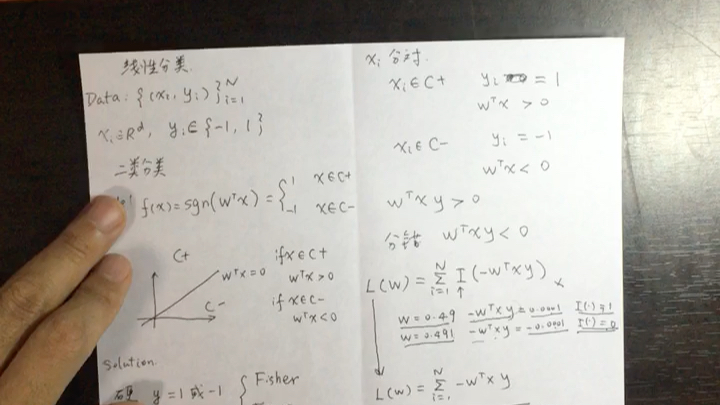 线性分类.
Data: {(xᵢ, yᵢ)}ᴺᵢ₌₁
xᵢ∈Rᵈ, yᵢ∈{-1, 1}
二类分类
f(x)=sgn(wᵀx)={1 x∈C+
-1 x∈C-
C+
wᵀx=0
C-
if x∈C+
wᵀx>0
if x∈C-
wᵀx<0
Solution
硬 y=1或-1 { Fisher
xᵢ 分对.
xᵢ∈C+ yᵢ = 1
wᵀx > 0
xᵢ∈C- yᵢ = -1
wᵀx < 0
wᵀx y > 0
分错 wᵀx y < 0
L(w) = Σᴺᵢ₌₁ I(-wᵀx y) x
w=0.49 -wᵀx y = 0.0001 I(·)=1
w=0.491 -wᵀx y = -0.0001 I(·)=0
L(w) = Σᴺᵢ₌₁ -wᵀx y